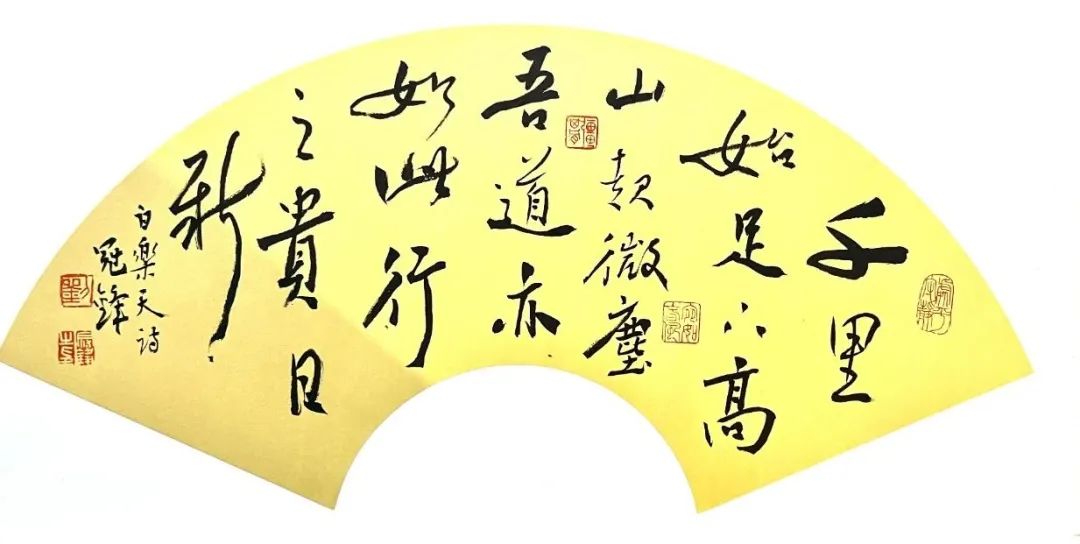 千里
始足下高
山起微塵
吾道亦
如此行
之貴日
新
白樂天詩
冠鋒